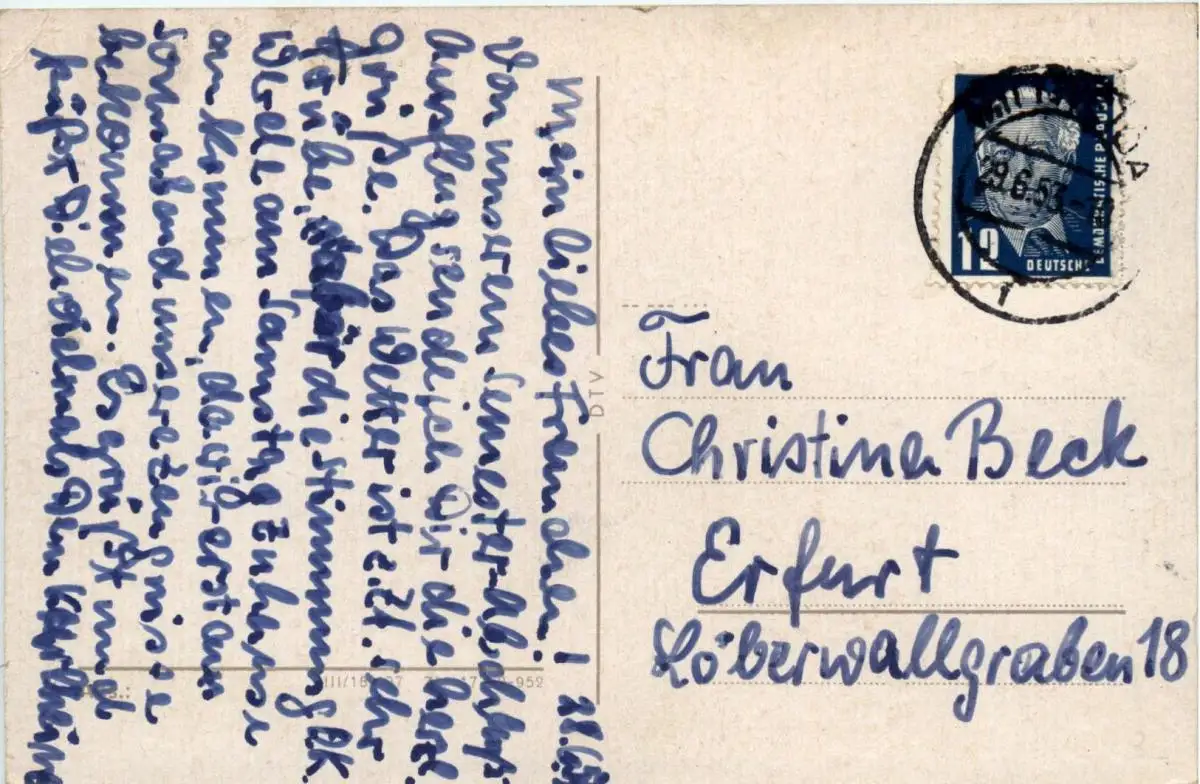 Mein liebes Frauchen!
28.6.
Von unserem Semester-abschluß-
Ausflug sende ich Dir die herzl.
Grüße. Das Wetter ist z.Zt. sehr
trübe, dafür die Stimmung O.K.
Werde am Samstag zu Hause
ankommen, da wir erst am
Sonnabend unsere Zeugnisse
bekommen. Es grüßt und
küßt Dich vielmals Dein
DTV
III/18/
952
29.6.53
12
DEUTSCHE
DEMOKRATISCHE REPUBLIK
Frau
Christina Beck
Erfurt
Löberwallgraben 18